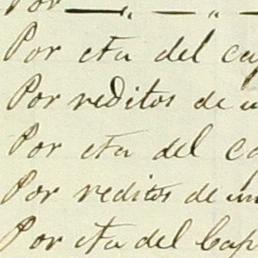 Por — „ — „ —
Por cta del ca
Por reditos de u
Por cta del Ca
Por reditos de un
Por cta del Cap